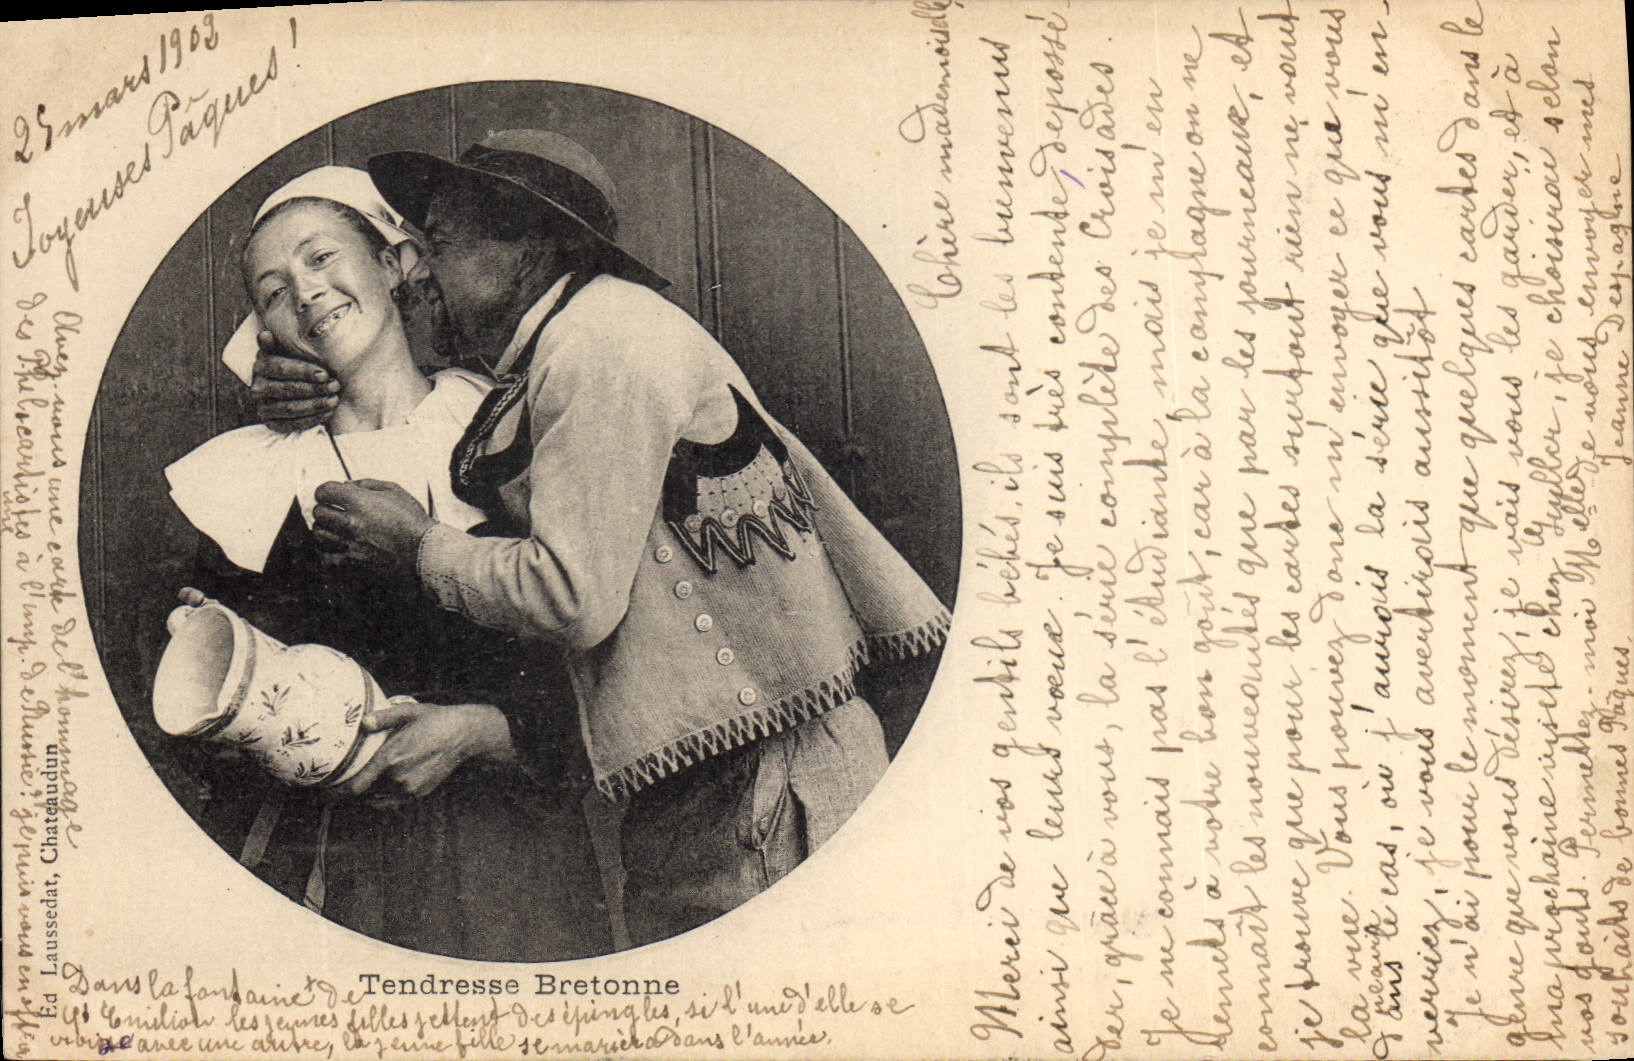 25 mars 1903
Joyeuses Pâques !
Chère mademoiselle,
Merci de vos gentils bébés, ils sont les bienvenus
ainsi que leurs vœux. Je suis très contente, de possé-
der, grâce à vous, la série complète des Croisades.
Je ne connais pas l'étudiante, mais je m'en
remets à votre bon goût, car à la campagne on ne
connaît les nouveautés que par les journeaux, et
je trouve que pour les cartes surtout rien ne vaut
la vue. Vous pouvez donc m'envoyer ce que vous
verriez, je vous avertirais aussitôt
dans le cas, où j'aurais la série que vous m'en-
Je n'ai pour le moment que quelques cartes dans le
genre que vous désirez, je vais vous les garder, et à
ma prochaine visite chez les Hyller, je choisirai selon
vos goûts. Permettez-moi Melle de vous envoyer mes
souhaits de bonnes Pâques.
Jeanne Despagne
Avez-vous une carte de l'hermitage
des
à l'imp. de
je puis vous en
Ed Laussedat, Chateaudun
Tendresse Bretonne
Dans la fontaine + de
St Emilion les jeunes filles jettent des épingles, si l'une d'elle se
avec une autre, la jeune fille se mariera dans l'année.